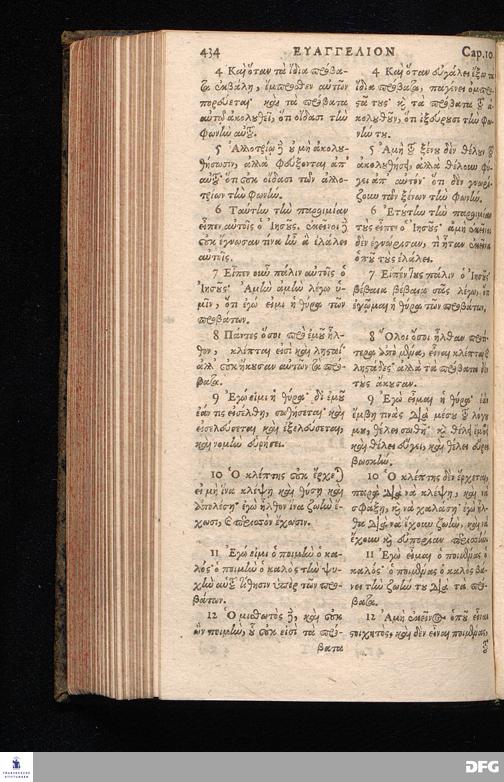 434 ΕΥΑΓΓΕΛΙΟΝ Cap.10
4 Καὶ ὅταν τὰ ἴδια πρόβα-
τα ἐκβάλῃ, ἔμπροσθεν αὐτῶν
πορεύεται· καὶ τὰ πρόβατα
αὐτῷ ἀκολουθεῖ, ὅτι οἴδασι τὴν
φωνὴν αὐτοῦ.
5 Ἀλλοτρίῳ δὲ οὐ μὴ ἀκολου-
θήσωσιν, ἀλλὰ φεύξονται ἀπ'
αὐτοῦ· ὅτι οὐκ οἴδασι τῶν ἀλλο-
τρίων τὴν φωνήν.
6 Ταύτην τὴν παροιμίαν
εἶπεν αὐτοῖς ὁ Ἰησοῦς. ἐκεῖνοι δὲ
οὐκ ἔγνωσαν τίνα ἦν ἃ ἐλάλει
αὐτοῖς.
7 Εἶπεν οὖν πάλιν αὐτοῖς ὁ
Ἰησοῦς· Ἀμὴν ἀμὴν λέγω ὑ-
μῖν, ὅτι ἐγώ εἰμι ἡ θύρα τῶν
προβάτων.
8 Πάντες ὅσοι πρὸ ἐμοῦ ἦλ-
θον, κλέπται εἰσὶ καὶ λῃσταί·
ἀλλ' οὐκ ἤκουσαν αὐτῶν τὰ πρό-
βατα.
9 Ἐγώ εἰμι ἡ θύρα· δι' ἐμοῦ
ἐάν τις εἰσέλθῃ, σωθήσεται· καὶ
εἰσελεύσεται καὶ ἐξελεύσεται,
καὶ νομὴν εὑρήσει.
10 Ὁ κλέπτης οὐκ ἔρχεται
εἰ μὴ ἵνα κλέψῃ καὶ θύσῃ καὶ
ἀπολέσῃ· ἐγὼ ἦλθον ἵνα ζωὴν ἔ-
χωσι, καὶ περισσὸν ἔχωσιν.
11 Ἐγώ εἰμι ὁ ποιμὴν ὁ κα-
λός· ὁ ποιμὴν ὁ καλὸς τὴν ψυ-
χὴν αὐτοῦ τίθησιν ὑπὲρ τῶν προ-
βάτων.
12 Ὁ μισθωτὸς δὲ, καὶ οὐκ
ὢν ποιμὴν, οὗ οὐκ εἰσὶ τὰ πρό-
βατα
4 Καὶ ὅταν εὐγάλει ἔξω τὰ
ἴδια πρόβατα, παγαίνει ὀμπρο-
στά τους· καὶ τὰ πρόβατα τοῦ ἀ-
κολουθοῦν, ὅτι ἐξεύρουσι τὴν φω-
νήν του.
5 Ἀμὴ τοῦ ξένου δὲν θέλουν τοῦ
ἀκολουθήσῃ, ἀλλὰ θέλουσι φύ-
γει ἀπ' αὐτόν· ὅτι δὲν γνωρί-
ζουν τῶν ξένων τὴν φωνήν.
6 Ἐτούτην τὴν παροιμίαν
τοὺς εἶπεν ὁ Ἰησοῦς· ἀμὴ ἐκεῖνοι
δὲν ἐγνώρισαν, τί ἦταν ἐκεῖνα
ὁποῦ τοὺς ἐλάλει.
7 Εἶπέν τους πάλιν ὁ Ἰησοῦς·
βέβαια βέβαια σᾶς λέγω, ὅτι
ἐγὼ εἶμαι ἡ θύρα τῶν προβάτων.
8 Ὅλοι ὅσοι ἦλθαν πρω-
τερα ἀπὸ μένα, εἶναι κλέπται καὶ
λῃστάδες· ἀλλὰ τὰ πρόβατα δὲν
τοὺς ἄκουσαν.
9 Ἐγὼ εἶμαι ἡ θύρα· ἐὰν
ἔμβῃ τινὰς διὰ μέσου τοῦ λόγου
μου, θέλει σωθῆ· καὶ θέλει ἔμβει
καὶ θέλει εὔγει, καὶ θέλει εὕρει
βοσκήν.
10 Ὁ κλέπτης δὲν ἔρχεται,
παρὰ διὰ νὰ κλέψῃ, καὶ νὰ
σφάξῃ, καὶ νὰ χαλάσῃ· ἐγὼ ἦλ-
θα διὰ νὰ ἔχουν ζωὴν, καὶ νὰ
ἔχουν καὶ εὐπορίαν περισσήν.
11 Ἐγὼ εἶμαι ὁ ποιμένας ὁ
καλός· ὁ ποιμένας ὁ καλὸς βά-
νει τὴν ζωήν του διὰ τὰ πρό-
βατα.
12 Ἀμὴ ἐκεῖνος ὁποῦ εἶναι
μισθωτὸς, καὶ δὲν εἶναι ποιμένας,
τοῦ
DFG